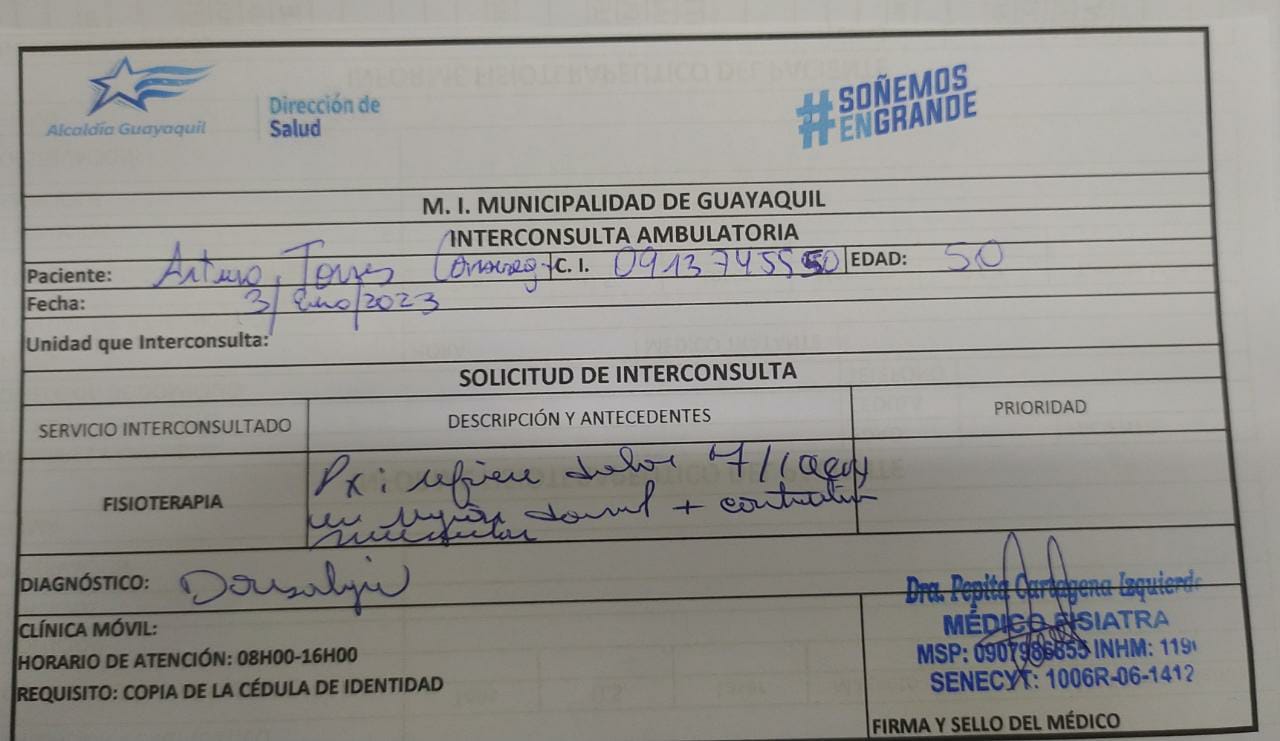 Alcaldía Guayaquil
Dirección de
Salud
#SOÑEMOS
ENGRANDE
M. I. MUNICIPALIDAD DE GUAYAQUIL
INTERCONSULTA AMBULATORIA
Paciente: Arturo Torres C. I. 09137455 EDAD: 50
Fecha: 3/Enero/2023
Unidad que Interconsulta:
SOLICITUD DE INTERCONSULTA
SERVICIO INTERCONSULTADO DESCRIPCIÓN Y ANTECEDENTES PRIORIDAD
FISIOTERAPIA
Px: refiere dolor 7/10
en región dorsal + contractura
muscular
DIAGNÓSTICO: Dorsalgia
CLÍNICA MÓVIL:
HORARIO DE ATENCIÓN: 08H00-16H00
REQUISITO: COPIA DE LA CÉDULA DE IDENTIDAD
Dra. Pepita Cartagena Izquierdo
MÉDICO FISIATRA
MSP: 0907986855 INHM: 119
SENECYT: 1006R-06-1412
FIRMA Y SELLO DEL MÉDICO